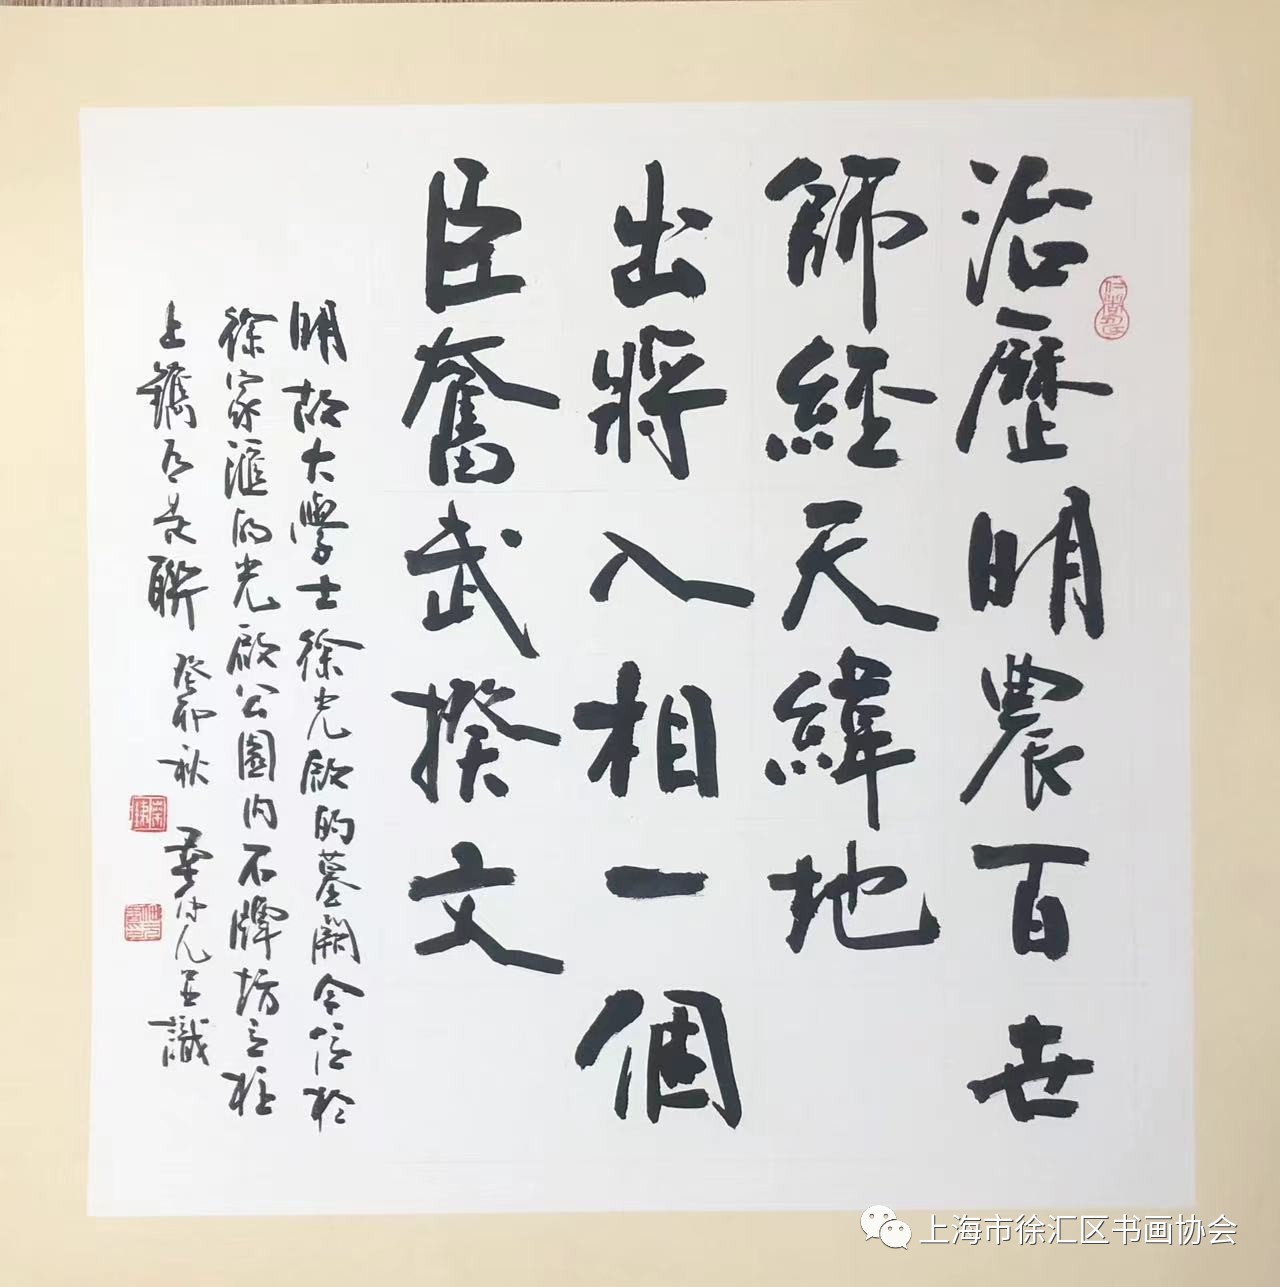 治歷明農百世
師經天緯地
出將入相一個
臣奮武揆文
明故大學士徐光啟的墓闕今位於
徐家滙的光啟公園內石牌坊立柱
上鐫有是聯 癸卯秋
并識
上海市徐汇区书画协会